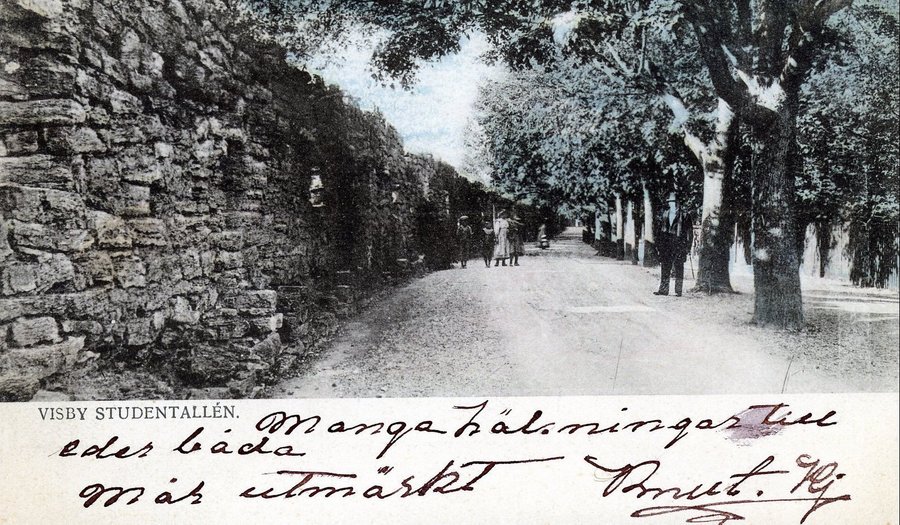 VISBY STUDENTALLÉN.
Manga hälsningar till
eder båda
Mår utmärkt